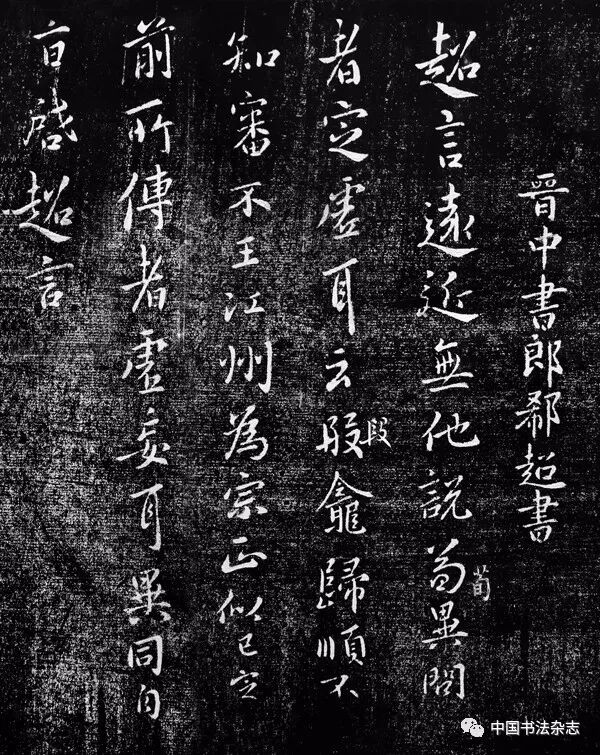 晉中書郎郗超書
超言遠近無他說荀異問
荀
者定虛耳云段龕歸順不
段
知審不王江州為宗正似已定
前所傳者虛妄耳異同自
啟超言
中国书法杂志